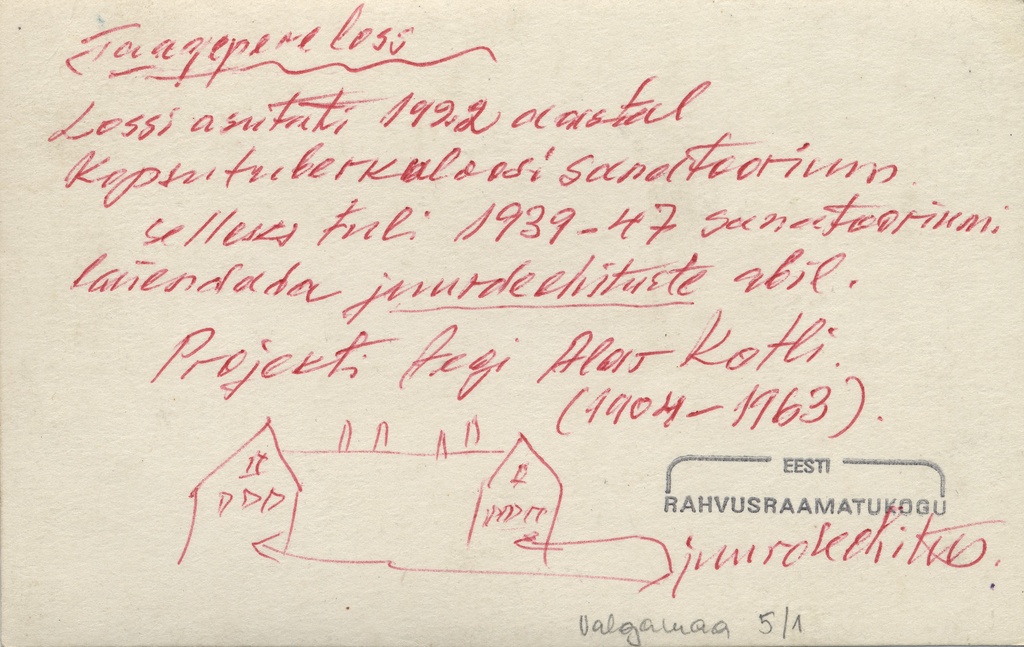 Taagepere loss
Lossi asutati 1922 aastal
Kopsutuberkuloosi sanatoorium
selleks tuli 1939-47 sanatooriumi
laiendada juurdeehituste abil.
Projekti tegi Alar Kotli.
(1904-1963).
EESTI
RAHVUSRAAMATUKOGU
juurdeehitus.
Valgamaa 5/1